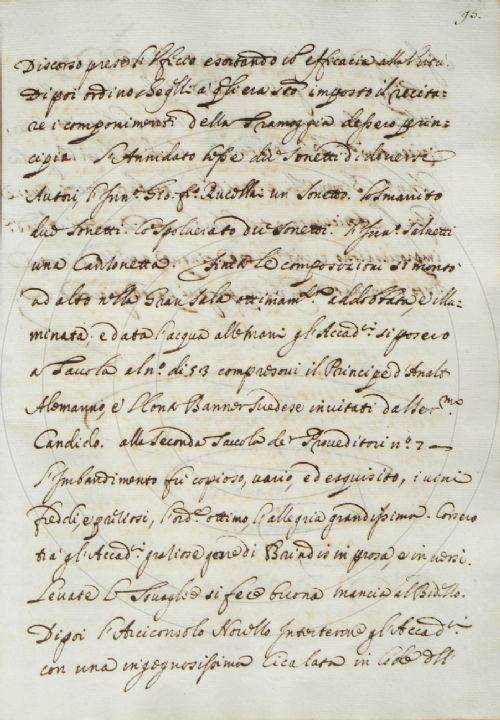 95.
Discorso prese l'Afficio esortando con efficacia alla Virtù.
Dipoi ordinò che gli a gli era sto imposto il recita-
re i componimenti della Tramoggia dessero prin-
cipio. L'Annidato lesse due Sonetti di diversi
Autori l'Inn.o Gio. fil. Rucellai un sonetto. Lo Smarrito
due Sonetti. Lo Spolverato due sonetti. l'Inn.o Salvetti
una Canzonetta. Finite le composizioni si montò
ad alto nella Gran Sala ottimam.te addobbata, e illu-
minata. e data l'acqua alle mani gl'Accad.i si posero
a Tavola al n.o di 53 compresovi il Principe d'Analt
Alemanno, e Mons. Banner Suedese invitati dal Ser.mo
Candido. alla Seconda Tavola de' Proveditori n.o 7 —
L'Imbandimento fù copioso, vario, ed esquisito, i vini
freddi, e gagliosi, l'ord.e ottimo, l'allegria grandissima. Corsero
tra gl'Accad.i graziose gare di Brindisi in prosa, e in versi.
Levate le Tovaglie si fece buona mancia al Bidello.
Dipoi l'Arciconsolo Novello Intertenne gl'Accad.i
con una ingegnosissima Cicalata in lode dell